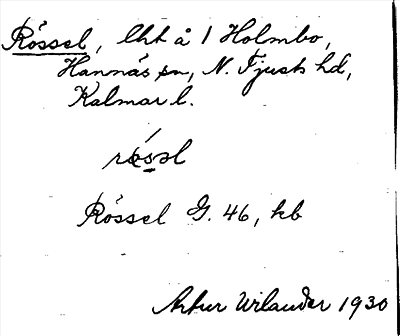 Rössel, lht å 1 Holmbo,
Hannäs sn, N. Tjusts hd,
Kalmar l.
Rössel G. 46, kb
Artur Wilander 1930